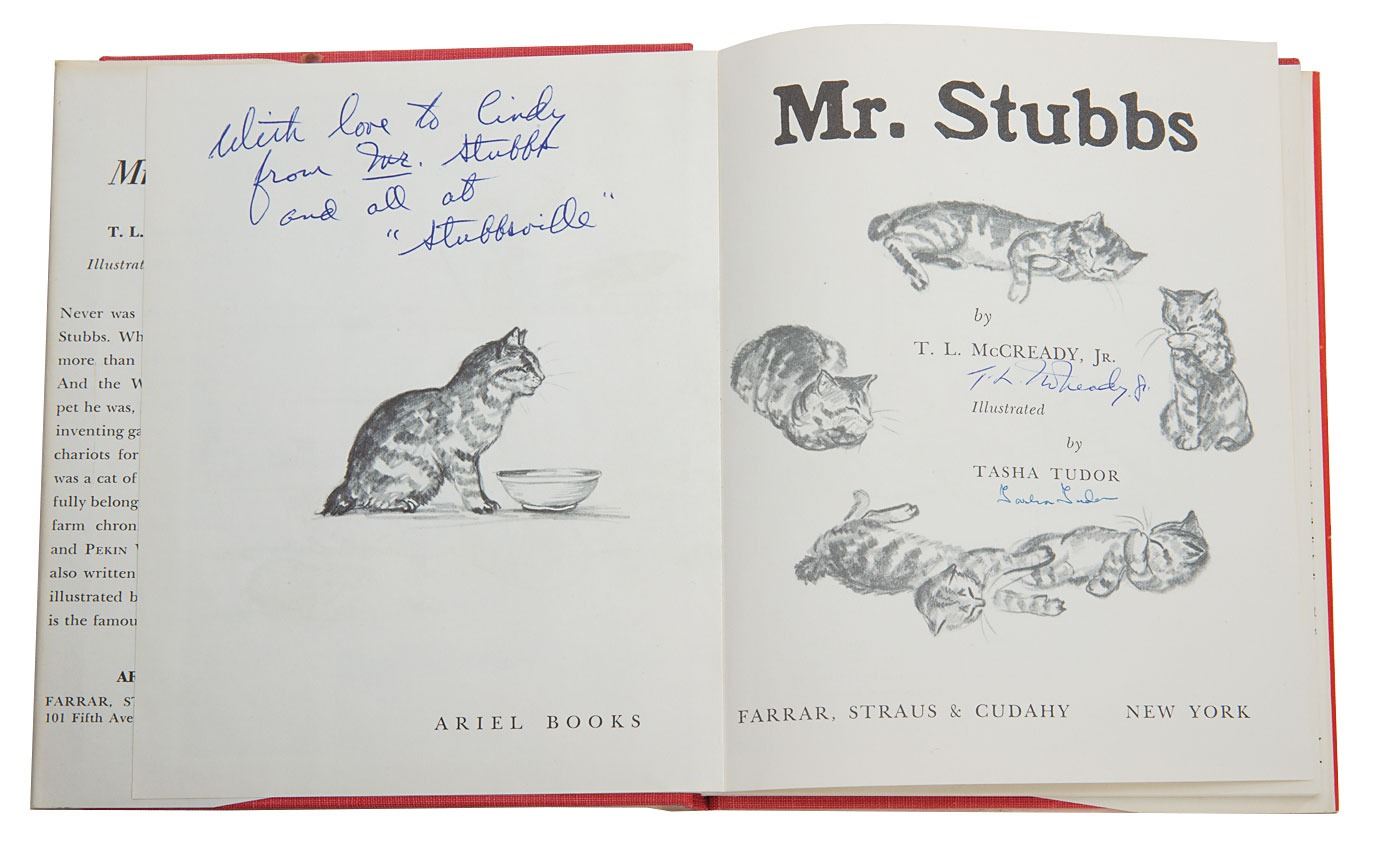 Mr
T. L.
Illustrat
Never was
Stubbs. Wh
more than
And the W
pet he was,
inventing ga
chariots for
was a cat of
fully belong
farm chron
and PEKIN W
also written
illustrated b
is the famou
AR
FARRAR, ST
101 Fifth Ave
With love to Cindy
from Mr. Stubbs
and all at
"Stubbsville"
ARIEL BOOKS
Mr. Stubbs
by
T. L. McCREADY, JR.
T. L. McCready, Jr.
Illustrated
by
TASHA TUDOR
Tasha Tudor
FARRAR, STRAUS & CUDAHY NEW YORK